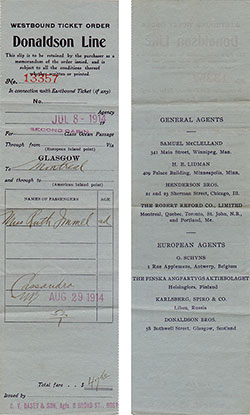 WESTBOUND TICKET ORDER
Donaldson Line
This slip is to be retained by the purchaser as a
memorandum of the order issued, and is
subject to all the conditions thereof
whether written or printed.
No. 13357
In connection with Eastbound Ticket (if any)
No.
Agency
JUL 8- 1914
For SECOND CABIN Class Ocean Passage
Through from Via
(European Island point)
GLASGOW
to Montreal
and through to
(American Island point)
NAMES OF PASSENGERS AGE
Miss Ruth ad
Cassandra
AUG 29 1914
Total fare . . $
Issued by
GENERAL AGENTS
SAMUEL McCLELLAND
341 Main Street, Winnipeg, Man.
H. E. LIDMAN
409 Palace Building, Minneapolis, Minn.
HENDERSON BROS.
21 and 23 Sherman Street, Chicago, Ill.
THE ROBERT REFORD CO., LIMITED
Montreal, Quebec, Toronto, St. John, N.B.,
and Portland, Me.
EUROPEAN AGENTS
G. SCHYNS
1 Rue Appelmans, Antwerp, Belgium
THE FINSKA ANGFARTYGS AKTIEBOLAGET
Helsingfors, Finland
KARLSBERG, SPIRO & CO.
Libau, Russia
DONALDSON BROS.
58 Bothwell Street, Glasgow, Scotland